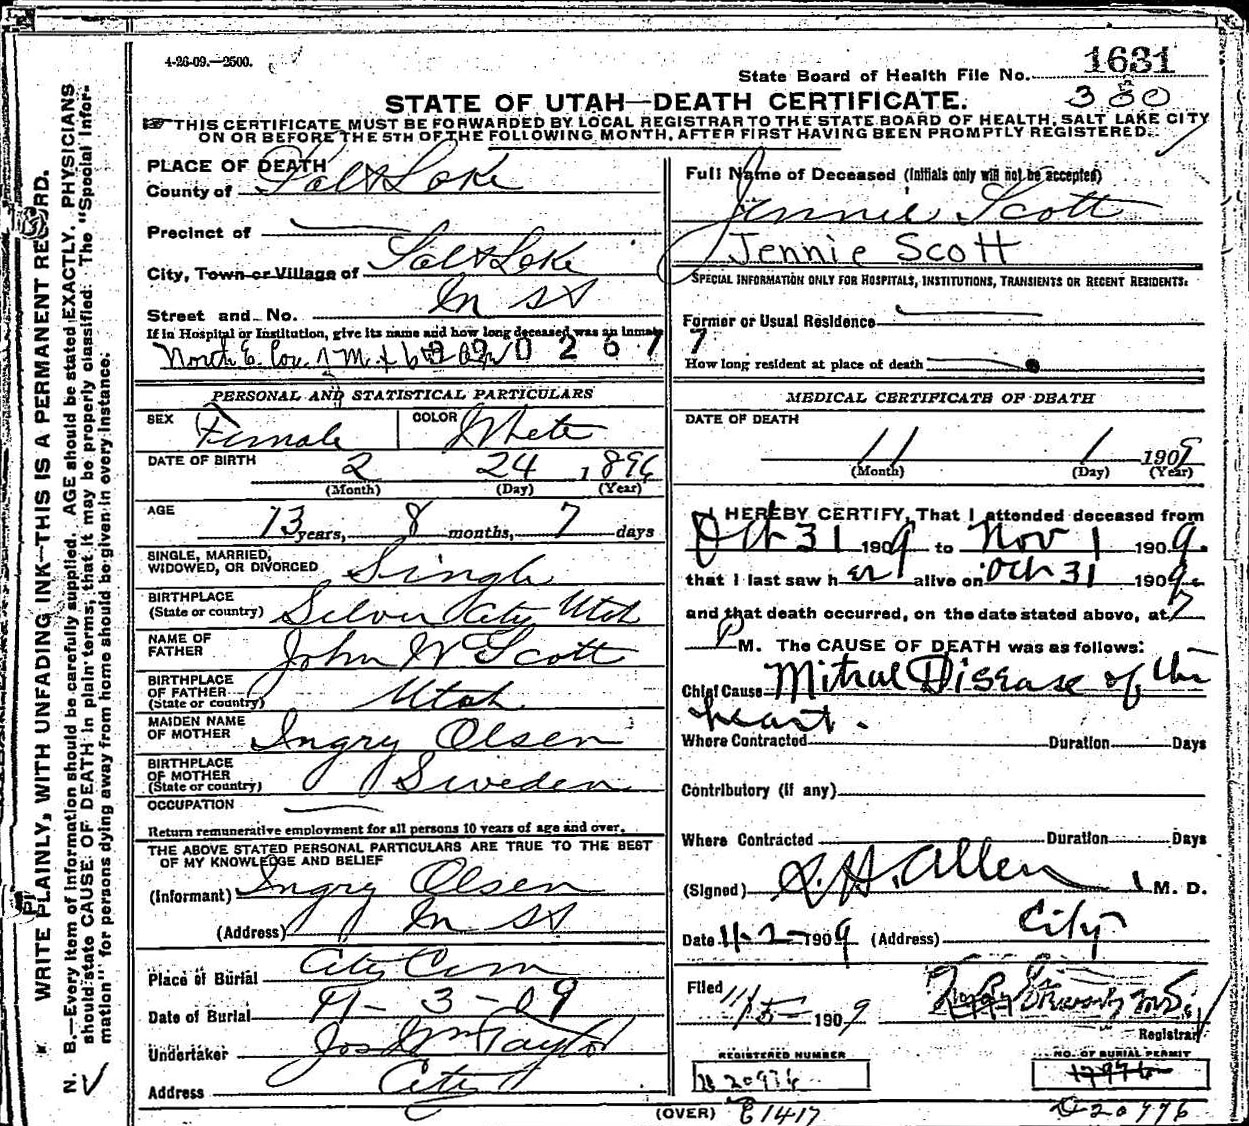 4-26-09.—2500.
1631
State Board of Health File No.
300
STATE OF UTAH—DEATH CERTIFICATE.
THIS CERTIFICATE MUST BE FORWARDED BY LOCAL REGISTRAR TO THE STATE BOARD OF HEALTH, SALT LAKE CITY
ON OR BEFORE THE 5TH OF THE FOLLOWING MONTH, AFTER FIRST HAVING BEEN PROMPTLY REGISTERED.
WRITE PLAINLY, WITH UNFADING INK—THIS IS A PERMANENT RECORD.
N. B.—Every item of information should be carefully supplied. AGE should be stated EXACTLY. PHYSICIANS
should state CAUSE OF DEATH in plain terms, that it may be properly classified. The "Special Infor-
mation" for persons dying away from home should be given in every instance.
PLACE OF DEATH
County of Salt Lake
Precinct of
City, Town or Village of Salt Lake
Street and No. In St
If in Hospital or Institution, give its name and how long deceased was an inmate
North E. Cor. 0 2 6 7
PERSONAL AND STATISTICAL PARTICULARS
SEX Female COLOR White
DATE OF BIRTH 2 24 1896
(Month) (Day) (Year)
AGE 13 years, 8 months, 7 days
SINGLE, MARRIED,
WIDOWED, OR DIVORCED Single
BIRTHPLACE
(State or country) Silver City Utah
NAME OF
FATHER John W Scott
BIRTHPLACE
OF FATHER
(State or country) Utah
MAIDEN NAME
OF MOTHER Ingry Olsen
BIRTHPLACE
OF MOTHER
(State or country) Sweden
OCCUPATION
Return remunerative employment for all persons 10 years of age and over.
THE ABOVE STATED PERSONAL PARTICULARS ARE TRUE TO THE BEST
OF MY KNOWLEDGE AND BELIEF
(Informant) Ingry Olsen
(Address) In St
Place of Burial City Cem
Date of Burial 11-3-09
Undertaker Jos Wm Taylor
Address City
Full Name of Deceased (Initials only will not be accepted)
Jennie Scott
Jennie Scott
SPECIAL INFORMATION ONLY FOR HOSPITALS, INSTITUTIONS, TRANSIENTS OR RECENT RESIDENTS:
Former or Usual Residence
7
How long resident at place of death
MEDICAL CERTIFICATE OF DEATH
DATE OF DEATH
11 1 1909
(Month) (Day) (Year)
I HEREBY CERTIFY, That I attended deceased from
Oct 31 1909 to Nov 1 1909.
that I last saw her alive on Oct 31 1909
and that death occurred, on the date stated above, at 7
P M. The CAUSE OF DEATH was as follows:
Chief Cause Mitral Disease of the
heart.
Where Contracted Duration Days
Contributory (if any)
Where Contracted Duration Days
(Signed) S. H. Allen M. D.
Date 11-2-1909 (Address) City
Filed 11/5-1909
Registrar
REGISTERED NUMBER
NO. OF BURIAL PERMIT
(OVER) E1417